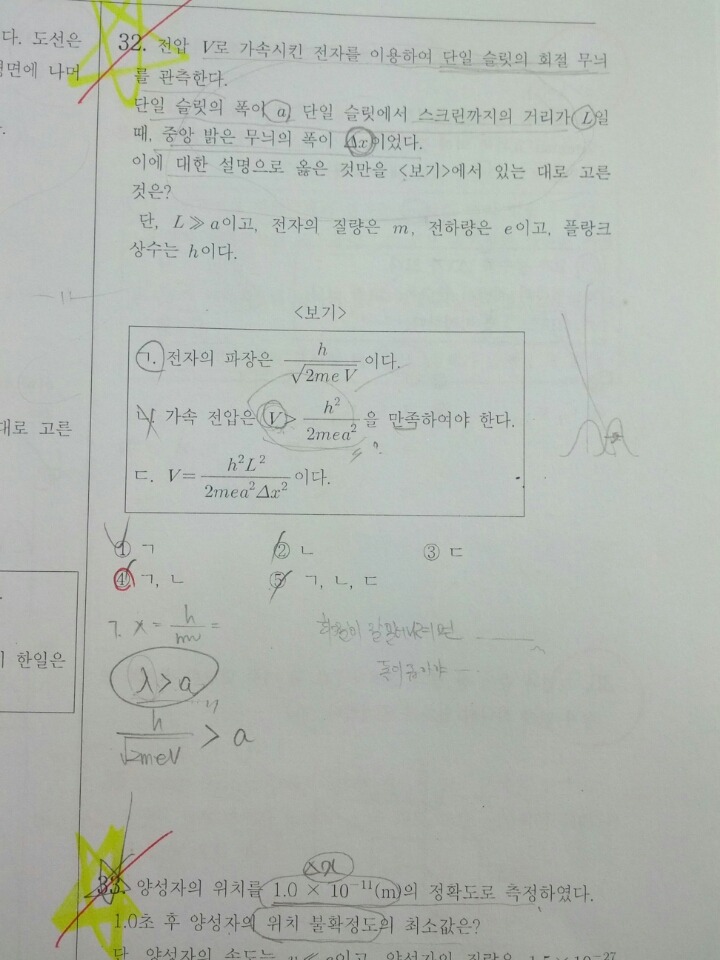 다. 도선은
32. 전압 V로 가속시킨 전자를 이용하여 단일 슬릿의 회절 무늬
를 관측한다.
단일 슬릿의 폭이 a, 단일 슬릿에서 스크린까지의 거리가 L일
때, 중앙 밝은 무늬의 폭이 Δx이었다.
이에 대한 설명으로 옳은 것만을 <보기>에서 있는 대로 고른
것은?
단, L≫a이고, 전자의 질량은 m, 전하량은 e이고, 플랑크
상수는 h이다.
<보기>
ㄱ. 전자의 파장은 h/√(2meV) 이다.
ㄴ. 가속 전압은 V> h²/2mea² 을 만족하여야 한다.
ㄷ. V= h²L²/2mea²Δx² 이다.
대로 고른
① ㄱ
② ㄴ
③ ㄷ
④ ㄱ, ㄴ
⑤ ㄱ, ㄴ, ㄷ
한일은
λ > a
h/√(2meV) > a
Δx
33. 양성자의 위치를 1.0 × 10⁻¹¹(m)의 정확도로 측정하였다.
1.0초 후 양성자의 위치 불확정도의 최소값은?